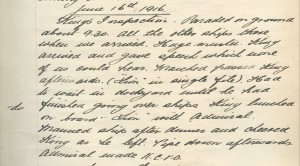 June 16th, 1916.
King's Inspection. Paraded on ground
about 9.30. All the other ships there
when we arrived. Huge muster. King
arrived and gave speech which none
of us could hear. Marched passed King
afterwards. ("Lion" in single file). Had
to wait in dockyard until he had
finished going over ships. King lunched
on board "Lion" with Admiral.
Manned ship after dinner and cheered
King as he left. Pipe down afterwards
Admiral made K.C.V.O.